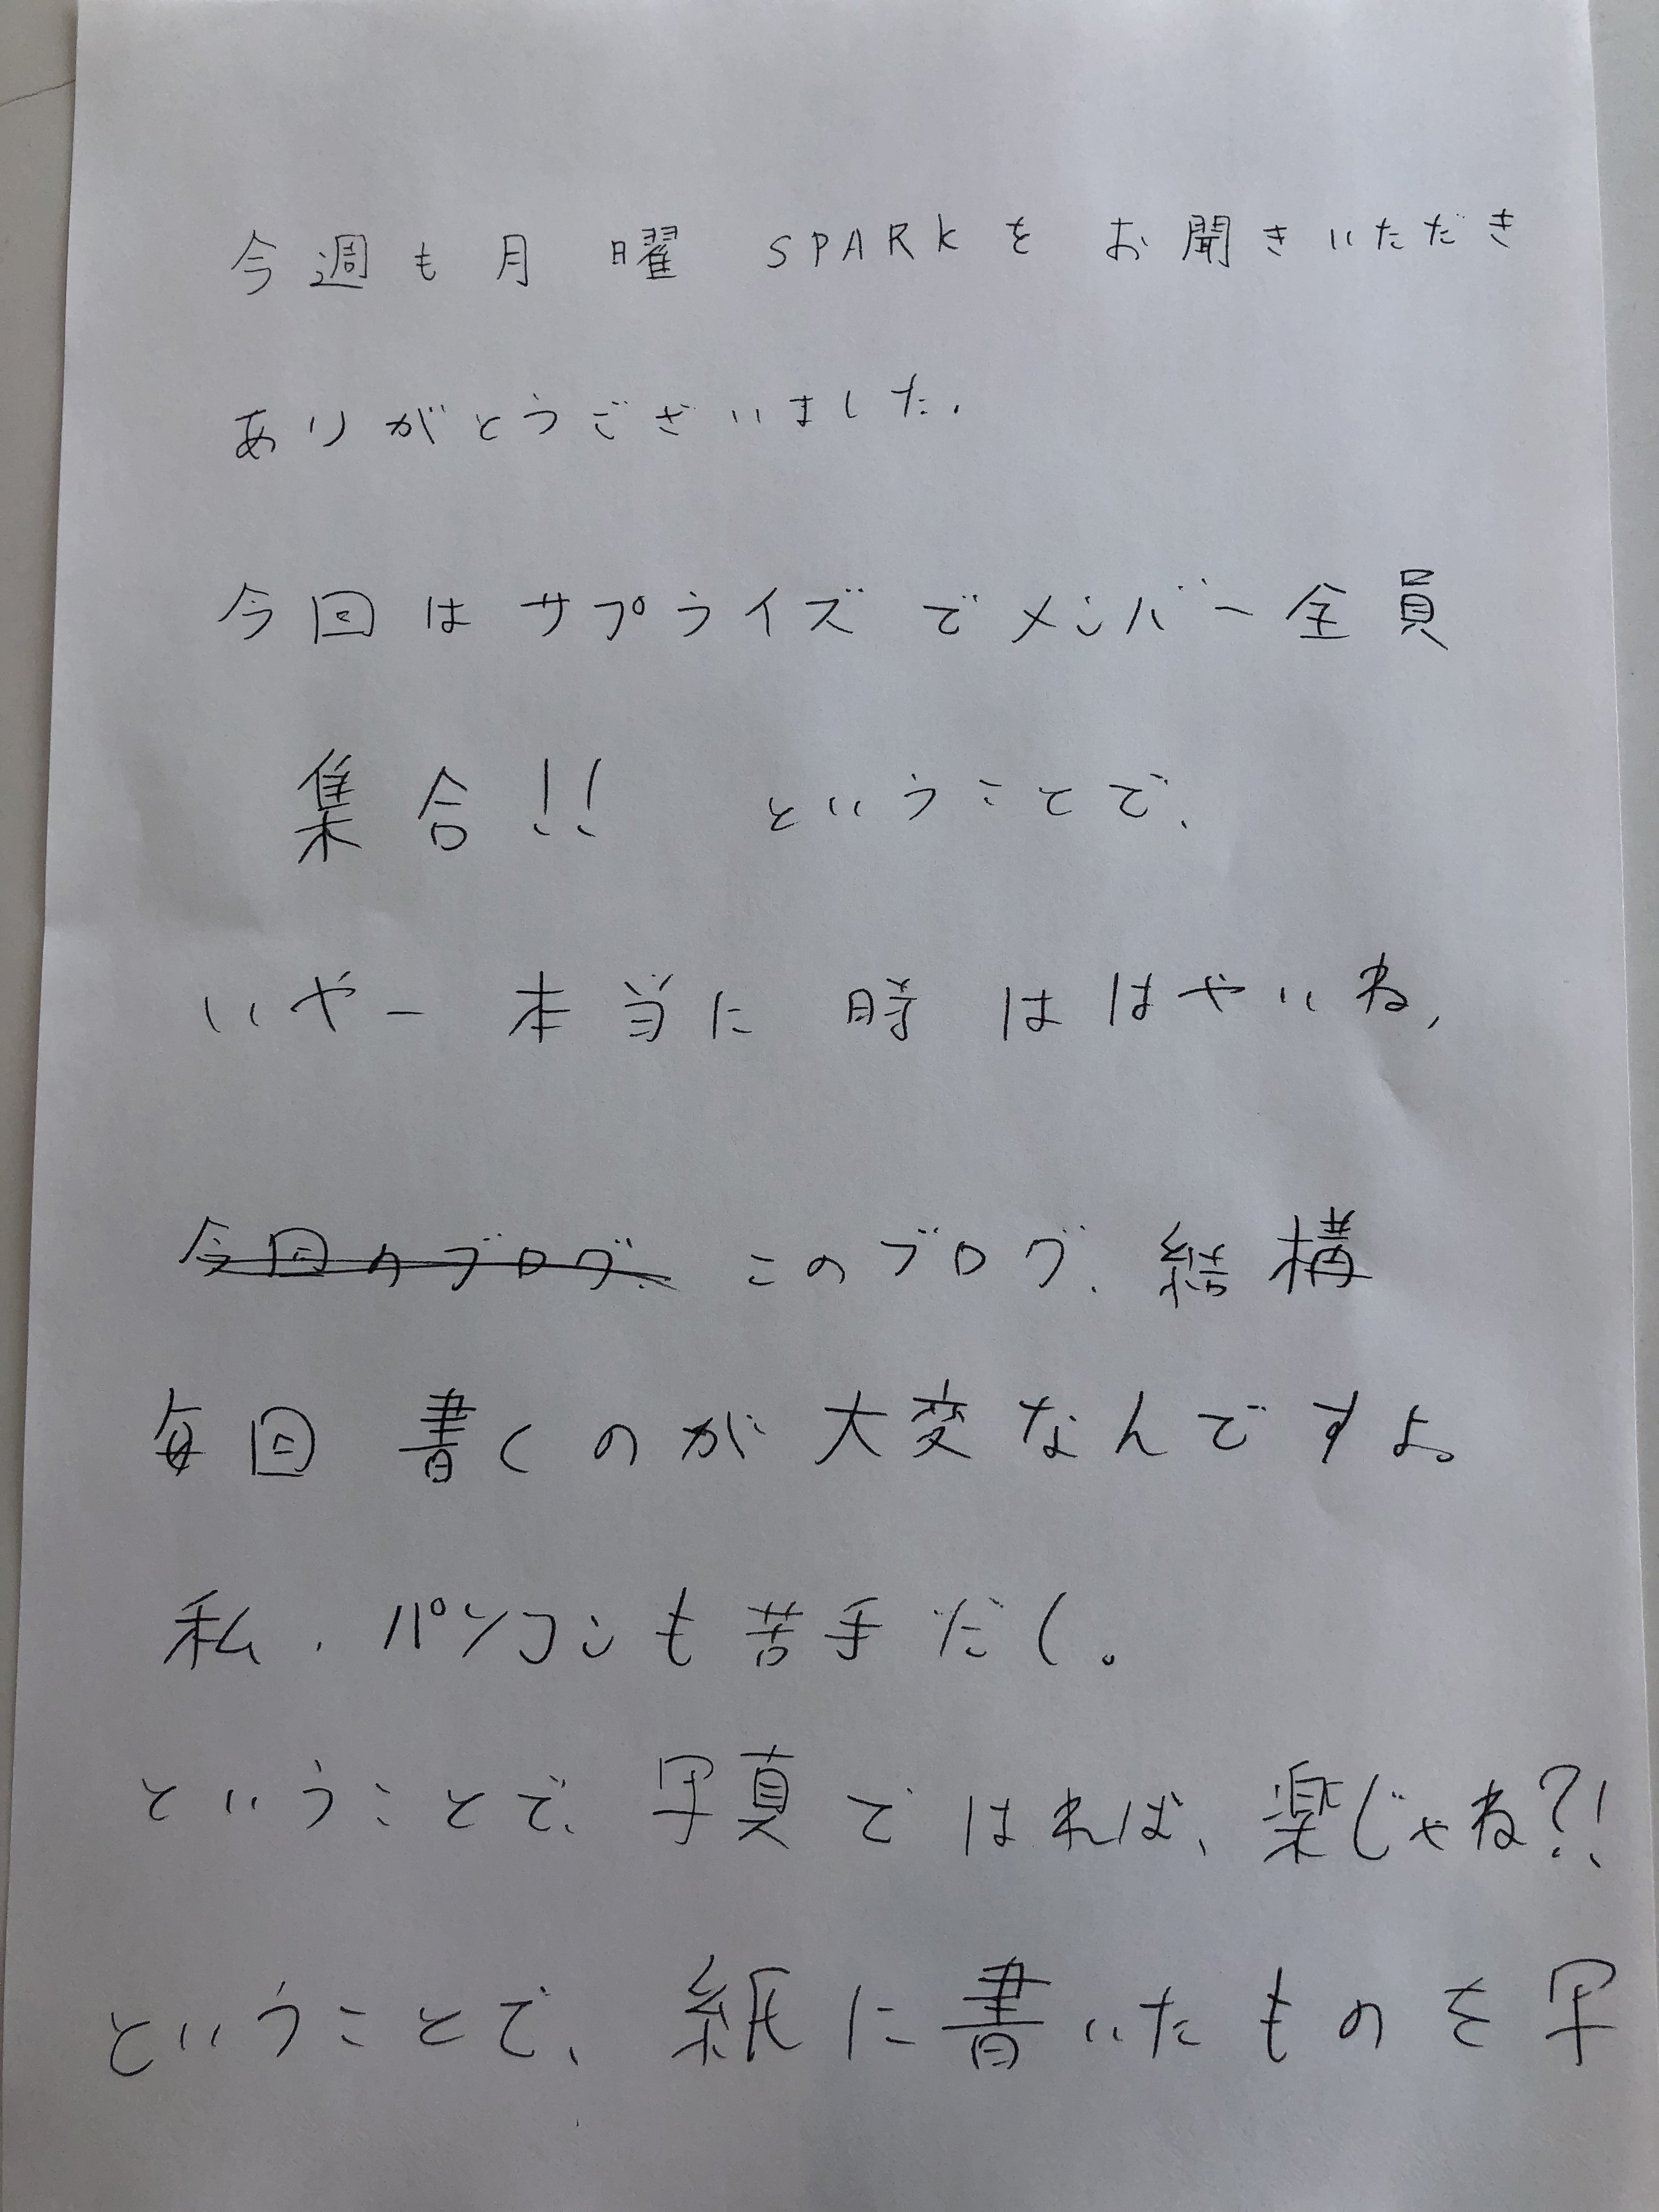 今週も月曜SPARKをお聞きいただき
ありがとうございました.
今回はサプライズでメンバー全員
集合!! ということで、
いやー本当に時ははやいね,
今回のブログ、このブログ、結構
毎回書くのが大変なんですよ。
私、パソコンも苦手だし。
ということで、写真ではれば、楽じゃね?!
ということで、紙に書いたものを写